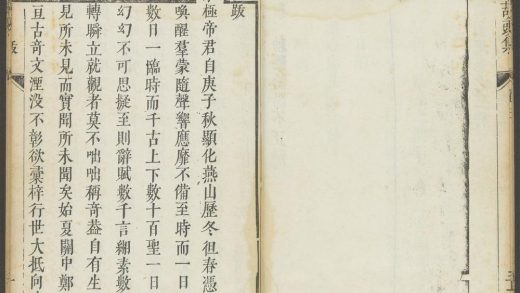 頭集
跋
極帝君自庚子秋顯化燕山歷冬徂春憑
喚醒羣蒙隨聲響應靡不備至時而一日
數日一臨時而千古上下數十百聖一日
幻幻不可思擬至則辭賦數千言緗素數
轉瞬立就觀者莫不咄咄稱奇葢自有生
見所未見而實聞所未聞矣始夏關中鄭
亘古奇文湮没不彰欲彙梓行世大抵向
跋